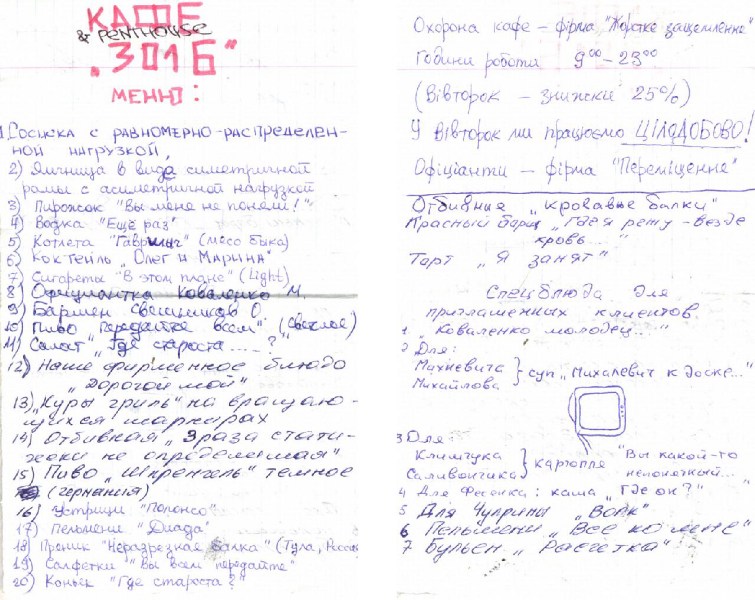 КАФЕ
& PENTHOUSE
"301Б"
МЕНЮ:
1) Сосиска с равномерно-распределен-
ной нагрузкой,
2) Яичница в виде симетричной
рамы с асиметричной нагрузкой
3) Пирожок "Вы мене не поняли!"
4) Водка "Ещё раз"
5) Котлета (мясо быка)
6) Коктейль "Олег и Марина"
7) Сигареты "В этом плане" (Light)
8) Официантка Коваленко М.
9) Бармен Свешников О.
10) Пиво "передайте всем" (светлое)
11) Салат "Где староста.....?"
12) Наше фирменное блюдо
"Дорогой мой"
13) "Куры гриль" на вращаю-
щихся шарнирах
14) Отбивная "3 раза стати-
жеки не определимая"
15) Пиво "Шпренгель" темное
(германия)
16) Устрицы "Полонсо"
17) Пельмени "Диада"
18) Пряник "Неразрезная балка" (Тула,
19) Салфетки "Вы всем передайте"
20) Коньяк "Где староста?"
Охорона кафе – фірма "Жорстке защемлення"
Години роботи 9⁰⁰–23⁰⁰
(Вівторок – знижки 25%)
У вівторок ми працюємо ЦІЛОДОБОВО!
Офіціанти – фірма "Переміщення"
Отбивные "кровавые балки"
Красный борщ "Где я режу – везде
кровь..."
Торт "Я занят"
Спецблюда для
приглашенных клиентов.
1 "Коваленко молодец..."
2 Для:
Михневича
Михайлова } суп "Михалевич к доске..."
3 Для
Климчука
Саливончика } картопля "Вы какой-то
непонятный..."
4 Для Фесенка: каша "Где он?"
5 Для Чуприны "Волк"
6 Пельмени "Все ко мне"
7 Бульен "Расчетка"